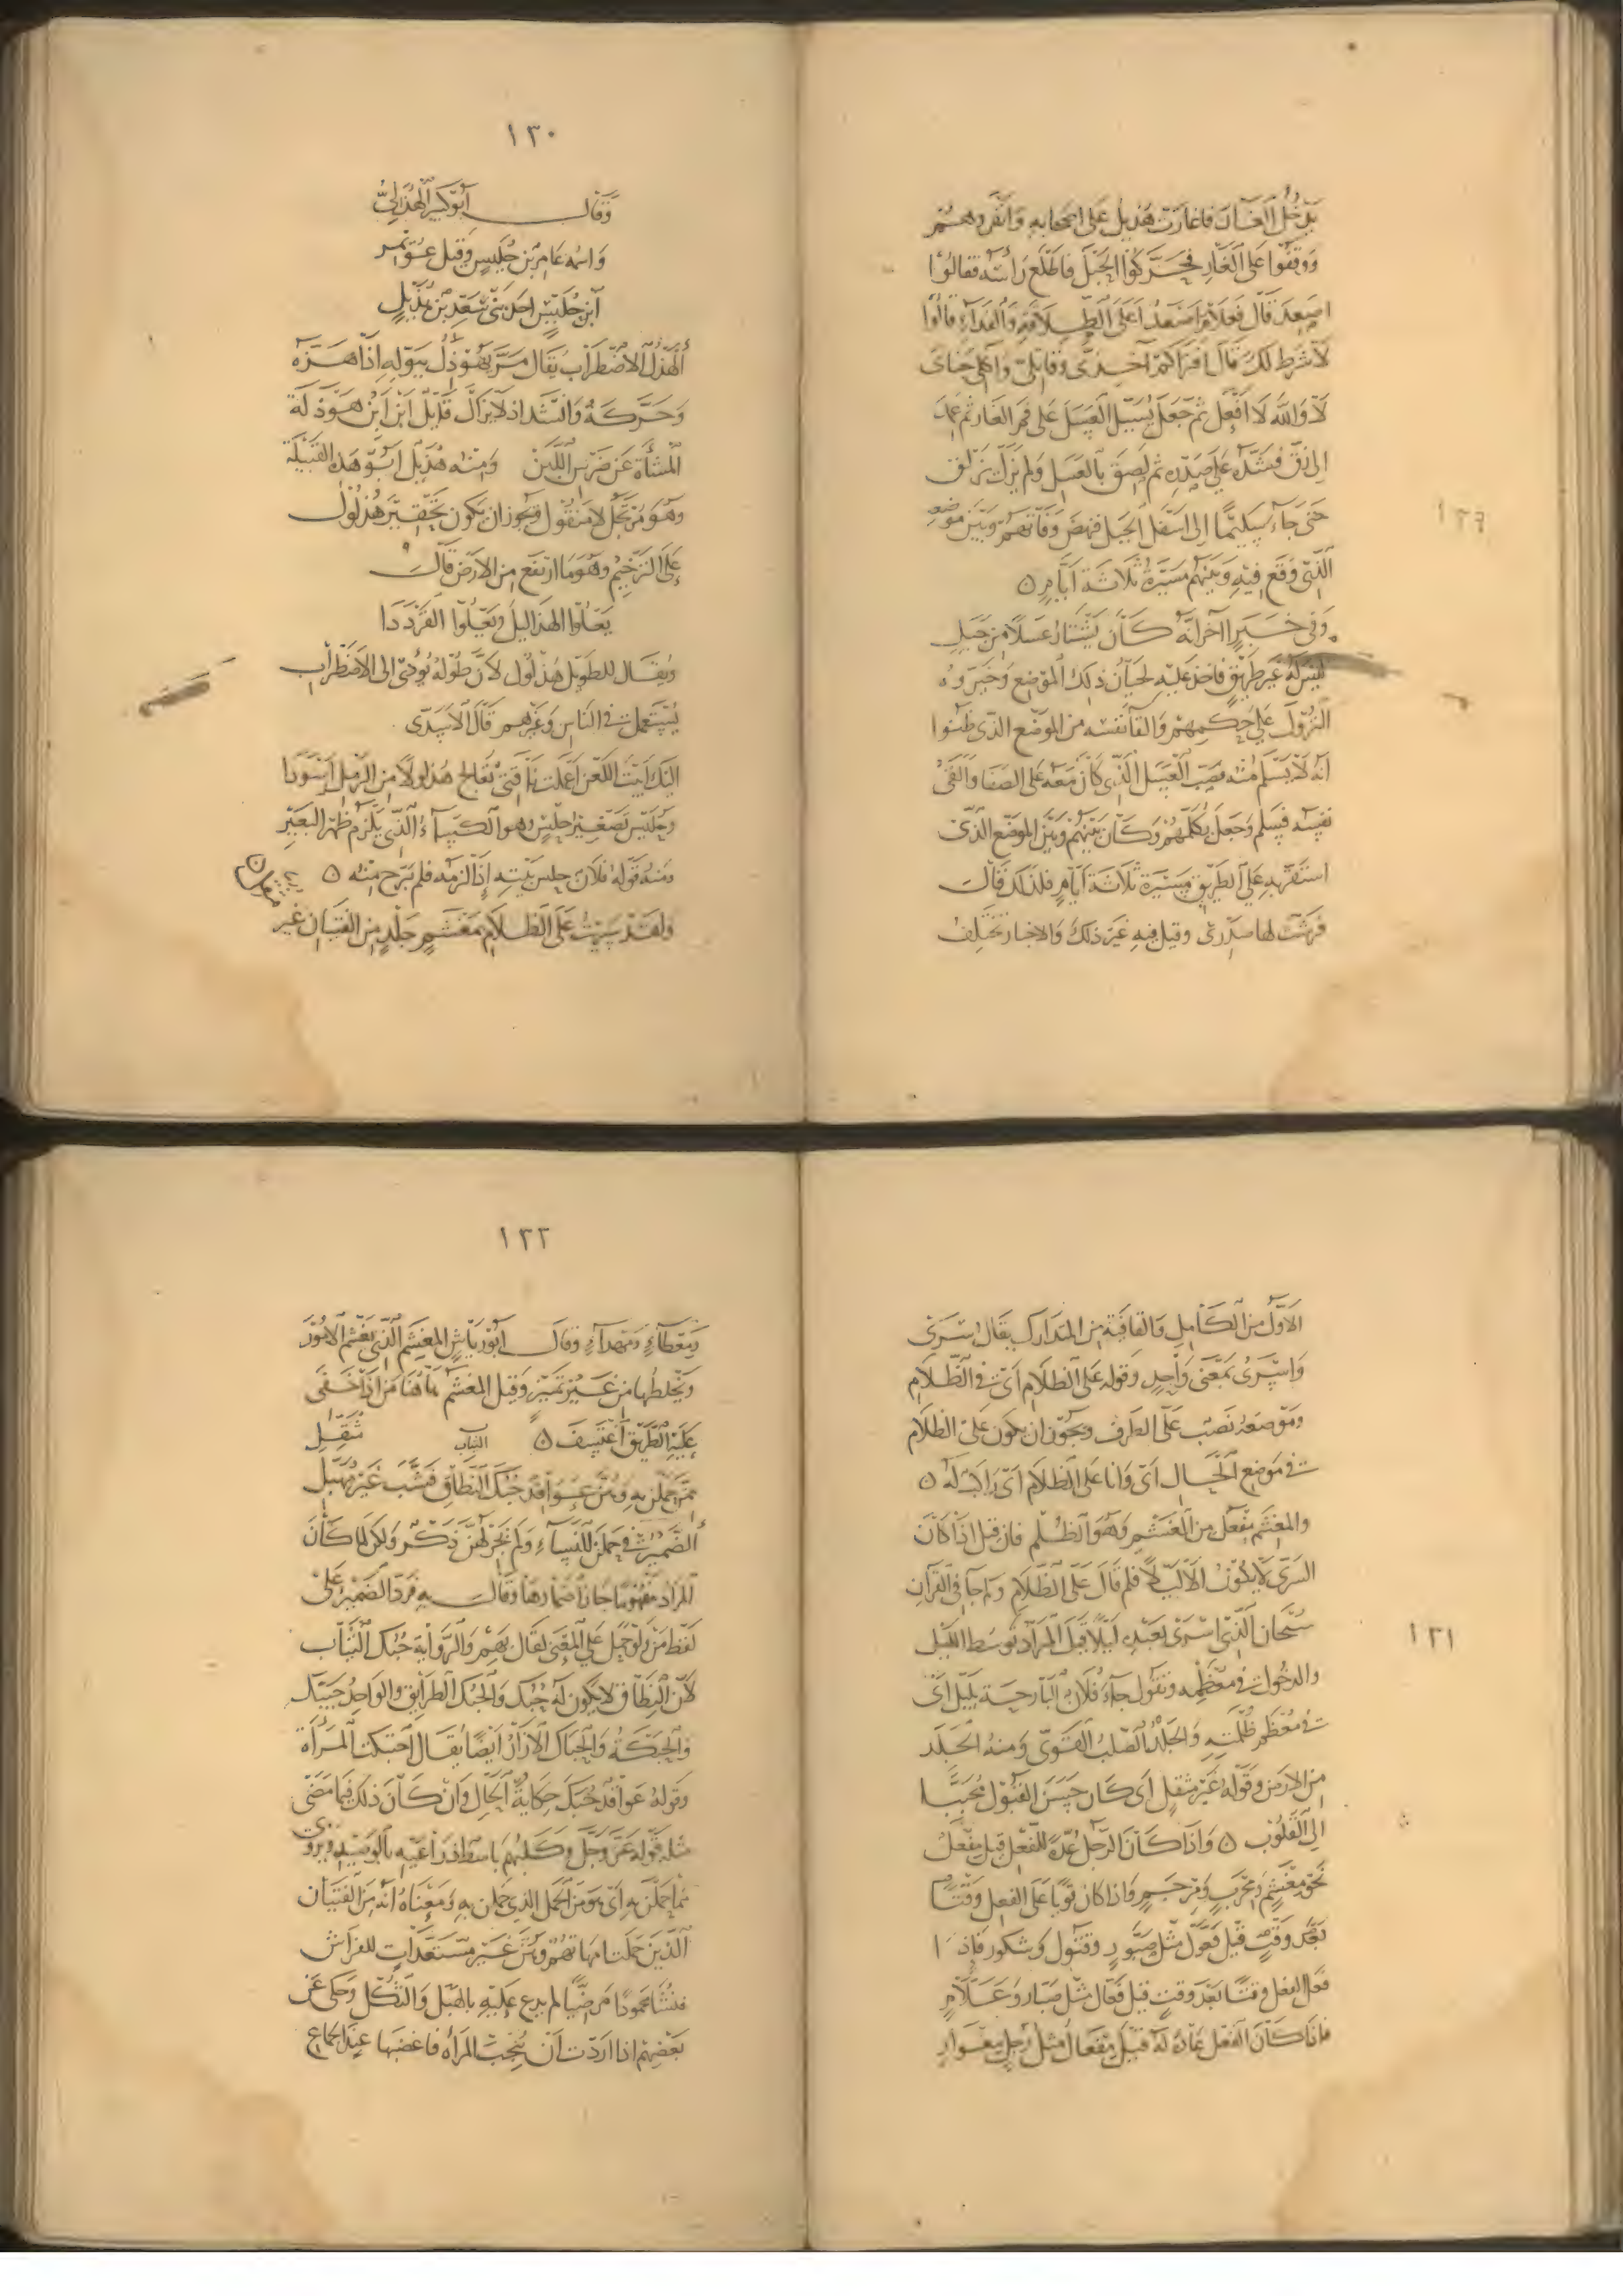 يدخل الغار فاغارت هذيل على اصحابه وانفردهم
ووقفوا على الغار فحركوا الجبل فاطلع رأسه فقالوا
اصعد قال فعلام اصعد أعلى الطلاقة والفداء قالوا
لا شرط لك قال افتراكم آخذي وقاتلي وآكلي جناي
لا والله لا افعل ثم جعل يسيل العسل على فم الغار ثم عمد
الى زق فشده على صدره ثم لصق بالعسل ولم يزل يزلق
حتى جاء سليما الى اسفل الجبل فنهض وفاتهم وبين موضعه
الذي وقع فيه وبينهم مسيرة ثلاثة ايام ٥
وفي خبر اخر انه كان يشتار عسلا من جبل
ليس له غير طريق فاخذ عليه لحيان ذلك الموضع وخيروه
النزول على حكمهم والقا نفسه من الموضع الذي ظنوا
انه لا يسلم منه فصب العسل الذي كان معه على الصفا والقى
نفسه فسلم وجعل يكلمهم وكان بينهم وبين الموضع الذي
استقر به على الطريق مسيرة ثلاثة ايام فلذلك قال
فرشت لها صدري وقيل فيه غير ذلك والاخبار تختلف
١٢٩
١٣٠
وقال ابو كبير الهذلي
واسمه عامر بن حليس وقيل عويمر
ابن حليس احد بني سعد بن هذيل
الهذل الاضطراب يقال مر يهوذل ببوله اذا هزه
وحركه وانشد اذ لا يزال قائل ابن ابن هوذلة
المشأة عن ضرس اللبن ومنه هذيل ابو هذه القبيلة
وهو مرتجل لا منقول ويجوز ان يكون تحقير هذلول
على الترخيم وهو ما ارتفع من الارض قال
يعلوا الهذاليل ويعلوا القرددا
ويقال للطويل هذلول لان طوله يؤدي الى الاضطراب
يستعمل في الناس وغيرهم قال الاسدي
اليك ابيت اللعن اعملت ناقتي تعالج هذلولا من الرمل اسودا
وحليس تصغير حلس وهو الكساء الذي يلزم ظهر البعير
ومنه قوله فلان حلس بيته اذا لزمه فلم يبرح منه ٥
ولقد سريت على الظلام بمغشم جلد من الفتيان غير
الاول من الكامل والقافية من المتدارك يقال سرى
واسرى بمعنى واحد وقوله على الظلام اي في الظلام
وموضعه نصب على الظرف ويجوز ان يكون على الظلام
في موضع الحال اي وانا على الظلام اي راكب له ٥
والمغشم مفعل من الغشم وهو الظلم فان قيل اذا كان
السرى لا يكون الا ليلا فلم قال على الظلام ولم جا في القرآن
سبحان الذي اسرى بعبده ليلا قيل المراد توسط الليل
والدخول في معظمه وتقول جاء فلان البارحة بليل اي
في معظم ظلمته والجلد الصلب القوي ومنه الجلد
من الارض وقوله غير مثقل اي كان حسن القبول محببا
الى القلوب ٥ واذا كان الرجل عدة للفعل قيل مفعل
نحو مغشم ومحرب ومرجم واذا كان قويا على الفعل وقتا
بعد وقت قيل فعول مثل صبور وقتول وشكور فاذا
فعل الفعل وقتا بعد وقت قيل فعال مثل صبار وعلام
فاذا كان الفعل عادة له قيل مفعال مثل رجل مغوار
١٣١
١٣٢
ومعطاء ومهداء وقال ابو رياش المغشم الذي يغشم الامور
ويخلطها من غير تمييز وقيل المغشم هاهنا من اذا خفى
عليه الطريق اعتسف ٥ الثياب مثقل
ممن حملن به وهن عواقد حبك النطاق فشب غير مهبل
الضمير في حملن للنساء ولم يجر لهن ذكر ولكن لما كان
المراد مفهوما جاز اضمارها وقال به فرد الضمير على
لفظ من ولو حمل على المعنى لقال بهم والرواية حبك الثياب
لان النطاق لا يكون له حبك والحبك الطرايق والواحد حبيك
والحبكة والحباك الازار ايضا يقال احتبكت المرأة
وقوله عواقد حبك حكاية الحال وان كان ذلك فيما مضى
مثله قوله عز وجل وكلبهم باسط ذراعيه بالوصيد ويروى
مما حملن به اي هو من الحمل الذي حملن به ومعناه انه من الفتيان
الذين حملت امهاتهم وهن غير مستعدات للفراش
فنشأ محمودا مرضيا لم يدع عليه بالهبل والثكل وحكى عن
بعضهم اذا اردت ان تنجب المرأة فاغضبها عند الجماع